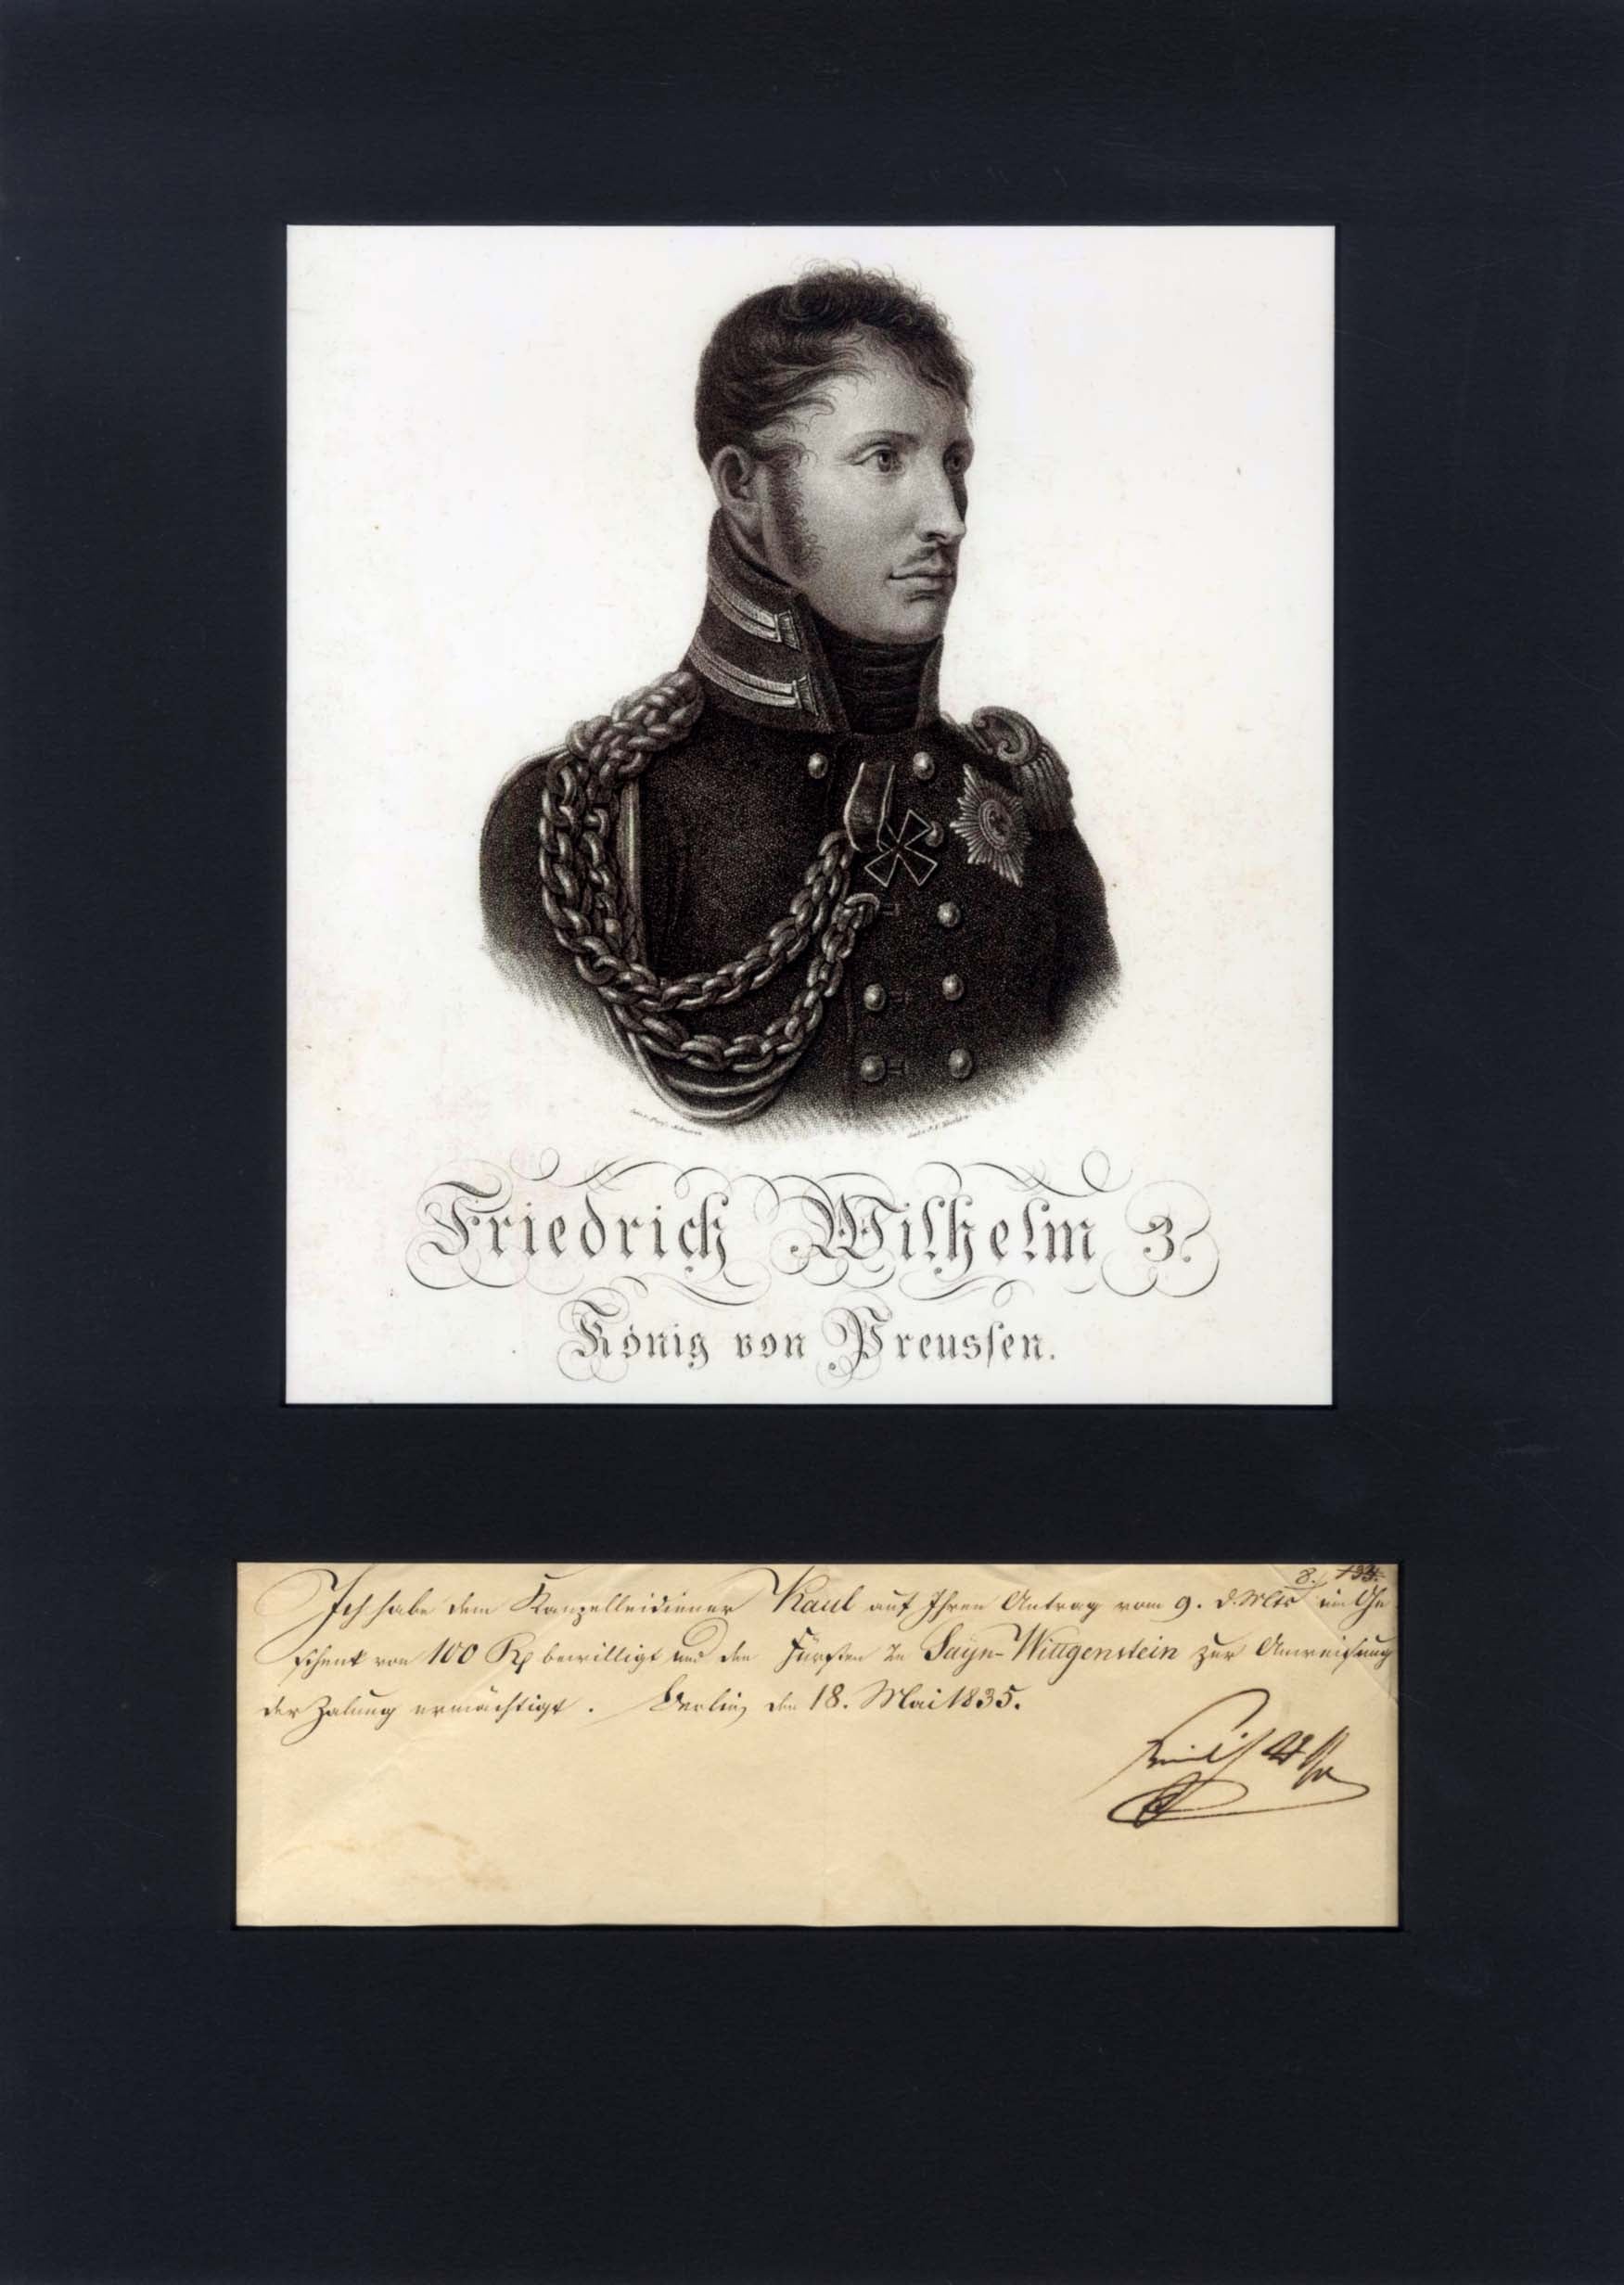 Friedrich Wilhelm 3.
König von Preussen.
Ich habe dem Kanzelleidiener Kaul auf Ihren Antrag vom 9. d. Mts ein Ge
schenk von 100 Rp bewilligt und den Fürsten zu Sayn-Wittgenstein zur Anweisung
der Zalung ermächtigt. Berlin, den 18. Mai 1835.